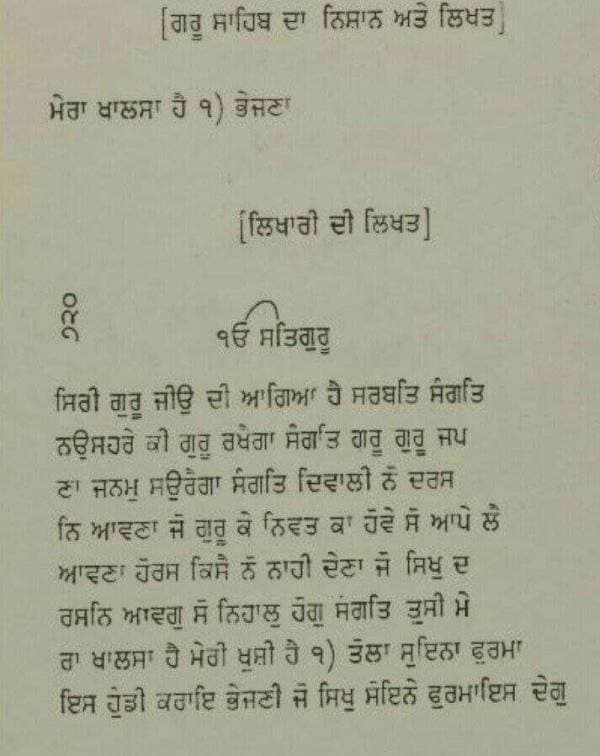 [ਗਰੂ ਸਾਹਿਬ ਦਾ ਨਿਸ਼ਾਨ ਅਤੇ ਲਿਖਤ]
ਮੇਰਾ ਖਾਲਸਾ ਹੈ ੧) ਭੇਜਣਾ
[ਲਿਖਾਰੀ ਦੀ ਲਿਖਤ]
੧੨੦
ੴ ਸਤਿਗੁਰੂ
ਸਿਰੀ ਗੁਰੂ ਜੀਉ ਦੀ ਆਗਿਆ ਹੈ ਸਰਬਤਿ ਸੰਗਤਿ
ਨਉਸਹਰੇ ਕੀ ਗੁਰੂ ਰਖੇਗਾ ਸੰਗਤਿ ਗਰੂ ਗੁਰੂ ਜਪ
ਣਾ ਜਨਮੁ ਸਉਰੈਗਾ ਸੰਗਤਿ ਦਿਵਾਲੀ ਨੋ ਦਰਸ
ਨਿ ਆਵਣਾ ਜੋ ਗੁਰੂ ਕੇ ਨਿਵਤ ਕਾ ਹੋਵੇ ਸੋ ਆਪੇ ਲੈ
ਆਵਣਾ ਹੋਰਸ ਕਿਸੈ ਨੋ ਨਾਹੀ ਦੇਣਾ ਜੋ ਸਿਖੁ ਦ
ਰਸਨਿ ਆਵਗੁ ਸੋ ਨਿਹਾਲੁ ਹੋਗੁ ਸੰਗਤਿ ਤੁਸੀ ਮੇ
ਰਾ ਖਾਲਸਾ ਹੈ ਮੇਰੀ ਖੁਸ਼ੀ ਹੈ ੧) ਤੋਲਾ ਸੁਇਨਾ ਫੁਰਮਾ
ਇਸ ਹੁੰਡੀ ਕਰਾਇ ਭੇਜਣੀ ਜੋ ਸਿਖੁ ਸੋਇਨੇ ਫੁਰਮਾਇਸ ਦੇਗੁ